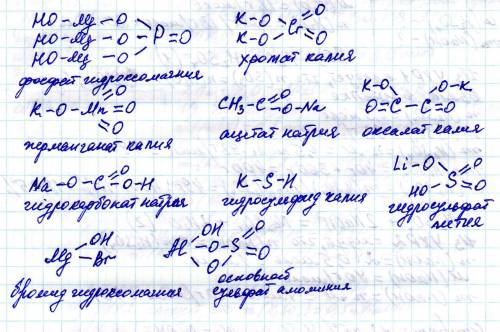 HO-Mg-O
HO-Mg-O-P=O
HO-Mg-O
фосфат гидроксомагния
K-O
K-O
Cr
=O
=O
хромат калия
K-O-Mn=O
=O
=O
перманганат калия
CH3-C=O
O-Na
ацетат натрия
K-O O-K
O=C-C=O
оксалат калия
Na-O-C=O
O-H
гидрокарбонат натрия
K-S-H
гидросульфид калия
Li-O
HO
S=O
=O
гидросульфат
лития
Mg
OH
Br
бромид гидроксомагния
Al
OH
O
O
S
=O
=O
основной
сульфат алюминия